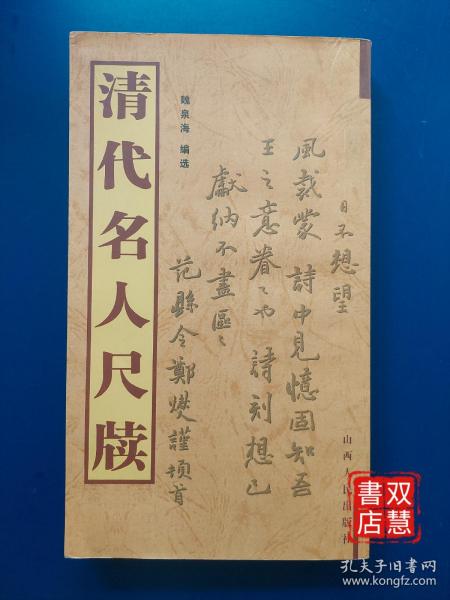 清代名人尺牍
魏泉海 编选
日不想望
風裁蒙 詩中見憶固知吾
王之意眷〻也 詩刻想已
獻納不盡區〻
范縣令鄭燮謹頓首
山西人民出版社
双慧
書店
孔夫子旧书网
www.kongfz.com